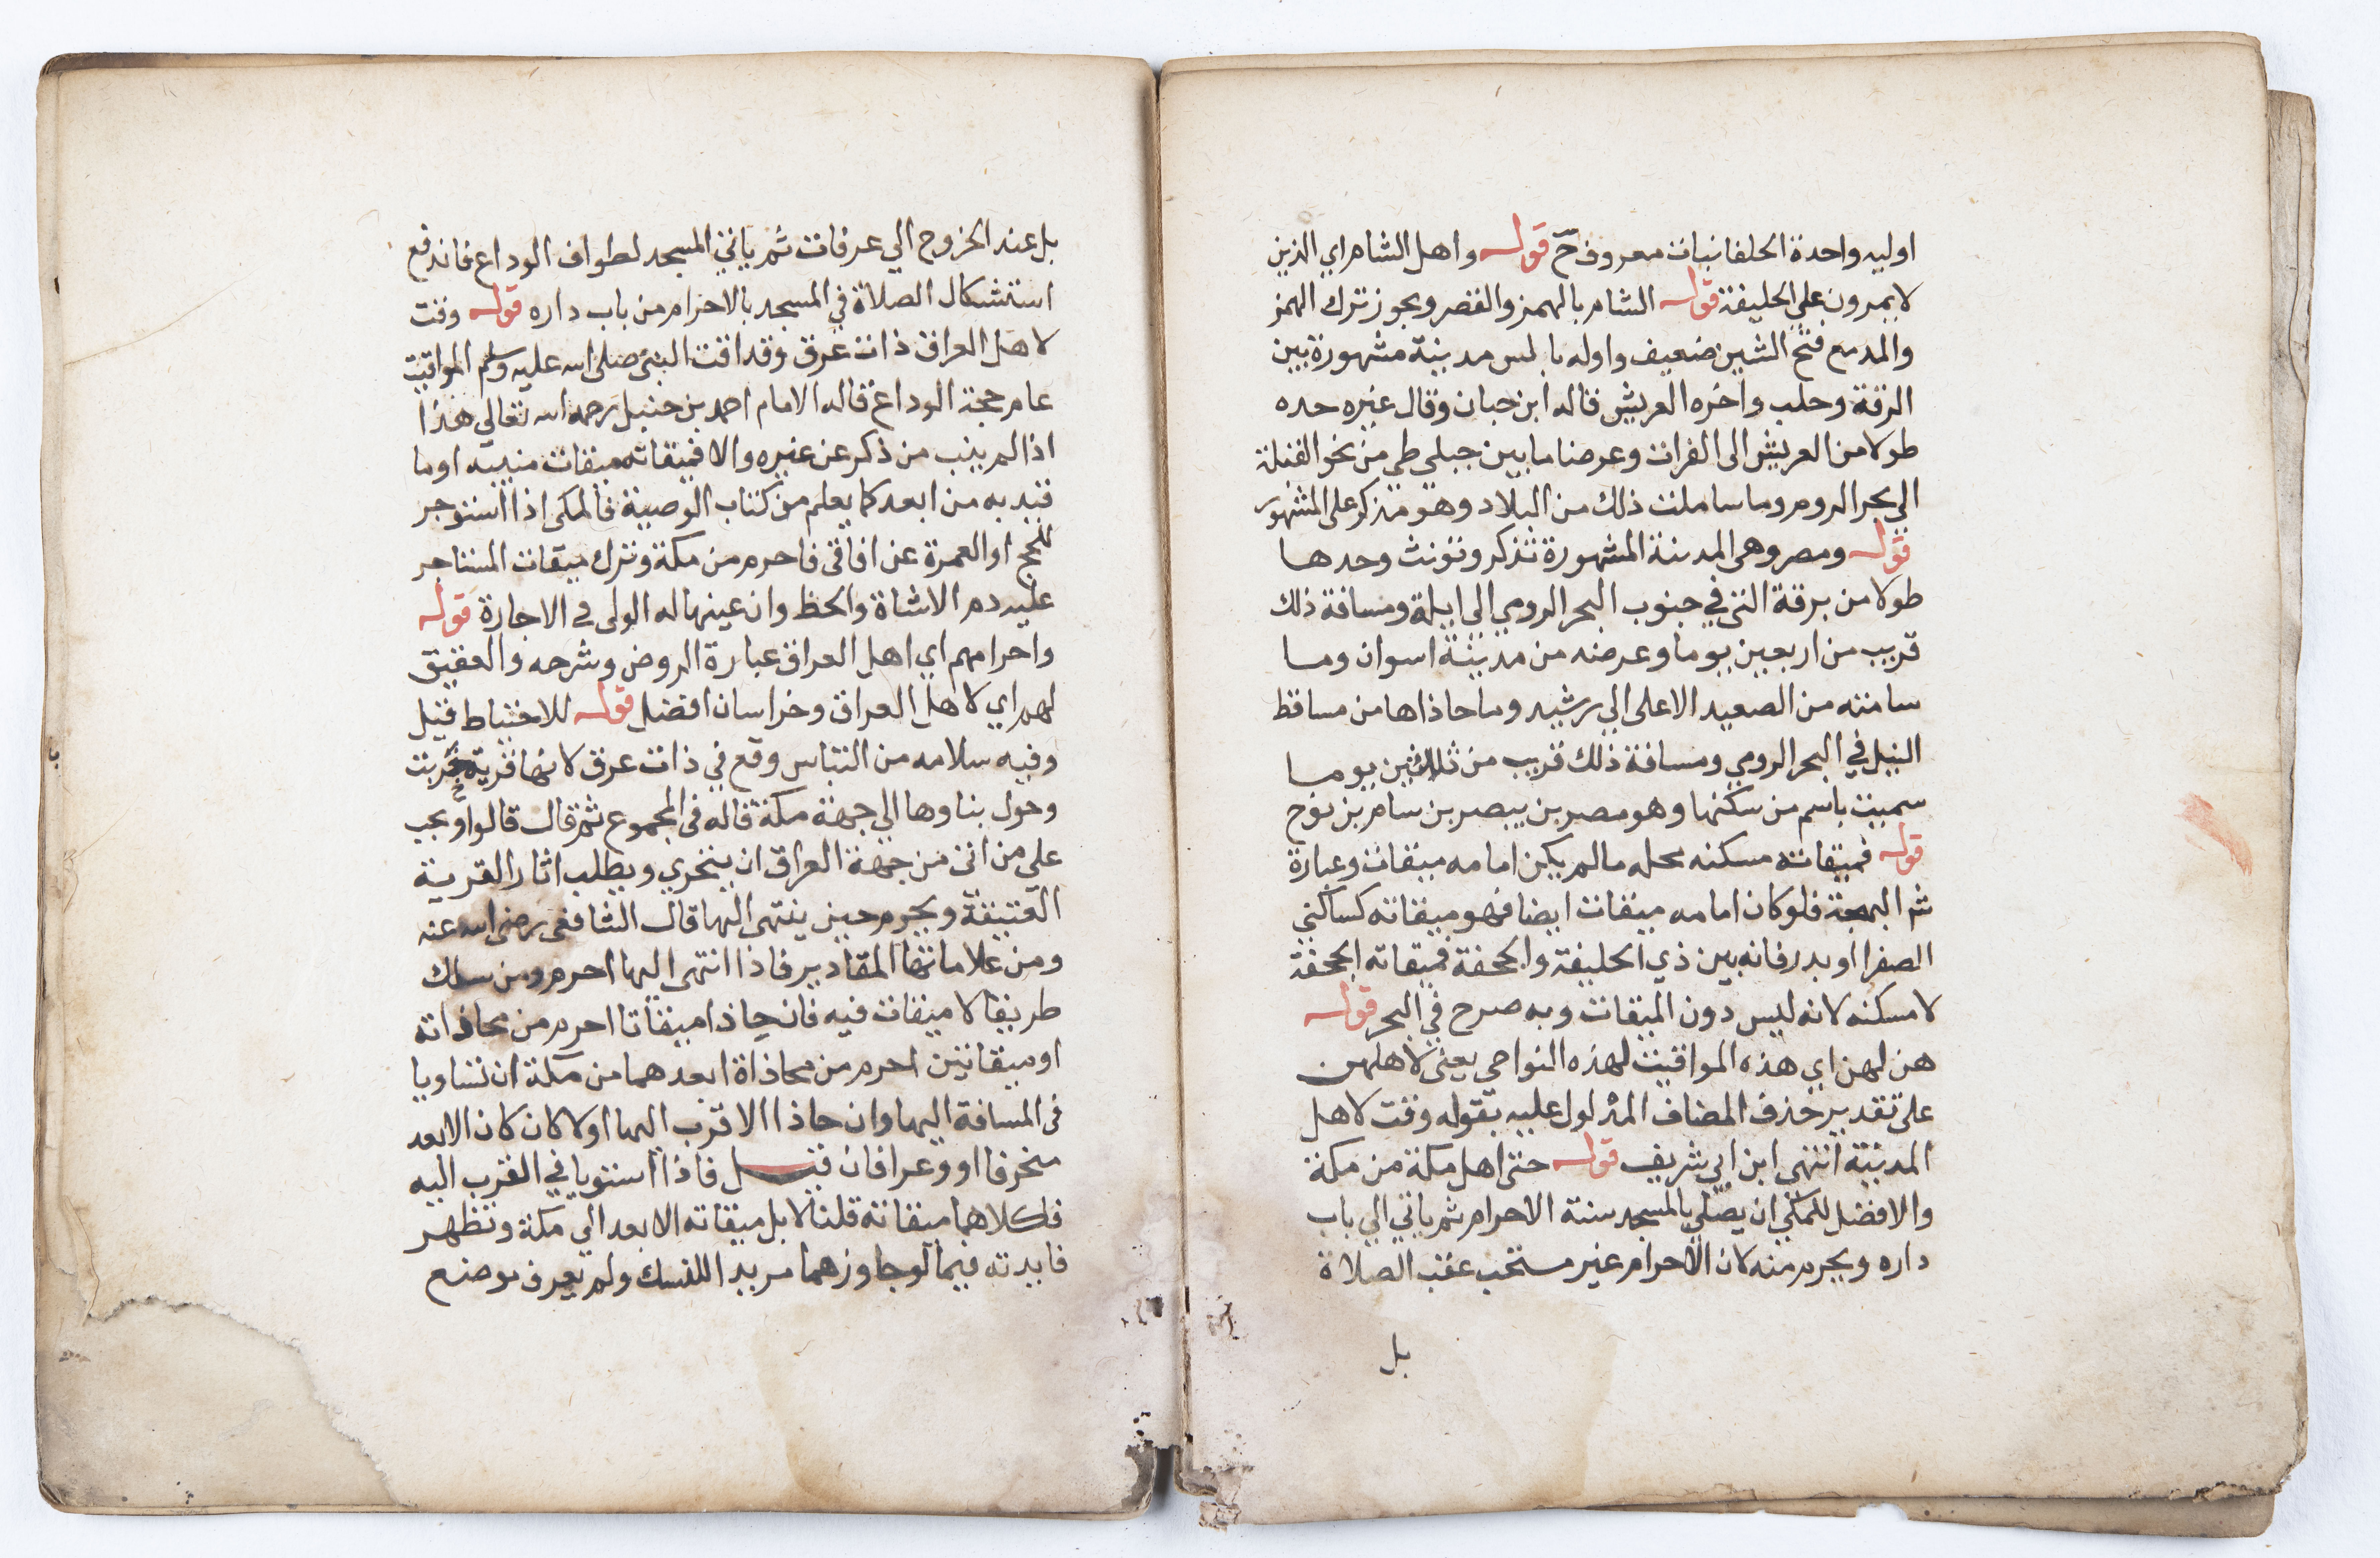 اوليه واحدة الحلفا نبات معروف ح قوله واهل الشام اي الذين
لا يمرون على الحليفة قوله الشام بالهمز والقصر ويجوز ترك الهمز
والمد مع فتح الشين ضعيف واوله بالس مدينة مشهورة بين
الرقة وحلب واخره العريش قاله ابن حبان وقال غيره حده
طولا من العريش الى الفرات وعرضا ما بين جبلي طي من نحو القبلة
الى بحر الروم وما سامت ذلك من البلاد وهو مذكر على المشهور
قوله ومصر وهي المدينة المشهورة تذكر وتؤنث وحدها
طولا من برقة التي في جنوب البحر الرومي الى ايلة ومسافة ذلك
قريب من اربعين يوما وعرضه من مدينة اسوان وما
سامته من الصعيد الاعلى الي رشيد وما حاذاها من مساقط
النيل في البحر الرومي ومسافة ذلك قريب من ثلاثين يوما
سميت باسم من سكنها وهو مصر بن بيصر بن سام بن نوح
قوله فميقاته مسكنه محله ما لم يكن امامه ميقات وعبارة
شم البهجة فلو كان امامه ميقات ايضا فهو ميقاته كساكني
الصفرا او بدر فانه بين ذي الحليفة والجحفة فميقاته الجحفة
لا مسكنه لانه ليس دون الميقات وبه صرح في البحر قوله
هن لهن اي هذه المواقيت لهذه النواحي يعني لاهلهن
على تقدير حذف المضاف المدلول عليه بقوله وقت لاهل
المدينة انتهى ابن ابي شريف قوله حتى اهل مكة من مكة
والافضل للمكي ان يصلي بالمسجد سنة الاحرام ثم ياتي الي باب
داره ويحرم منه لان الاحرام غير مستحب عقب الصلاة
بل
بل عند الخروج الي عرفات ثم ياتي المسجد لطواف الوداع فاندفع
استشكال الصلاة في المسجد بالاحرام من باب داره قوله وقت
لاهل العراق ذات عرق وقد اقت النبي صلى الله عليه وسلم المواقيت
عام حجة الوداع قاله الامام احمد بن حنبل رحمه الله تعالي هذا
اذا لم ينب من ذكر عن غيره والا فميقاته ميقات منيبه او ما
قيد به من ابعد كما يعلم من كتاب الوصية فالمكي اذا استوجر
للحج او العمرة عن افاقي فاحرم من مكة وترك ميقات المستاجر
عليه دم الاشاة والحظ وان عينها له الولى في الاجارة قوله
واحرامهم اي اهل العراق عبارة الروض وشرحه والعقيق
لهم اي لاهل العراق وخراسان افضل قوله للاحتياط قيل
وفيه سلامه من التباس وقع في ذات عرق لانها قرية خربت
وحول بناوها الي جهة مكة قاله في المجموع ثم قال قالوا ويجب
على من اتى من جهة العراق ان يتحري ويطلب اثار القرية
العتيقة ويحرم حين ينتهى اليها قال الشافعي رضي الله عنه
ومن علاماتها المقابر فاذا انتهى اليها احرم ومن سلك
طريقا لا ميقات فيه فان حاذا ميقاتا احرم من محاذاته
او ميقاتين احرم من محاذاة ابعدهما من مكة ان تساويا
في المسافة اليها وان حاذا الاقرب اليها اولا كان كان الابعد
منحرفا او وعرا فان قيل فاذا استويا في القرب اليه
فكلاهما ميقاته قلنا لا بل ميقاته الابعد الي مكة وتظهر
فايدته فيما لو جاوزهما مريد النسك ولم يعرف موضع